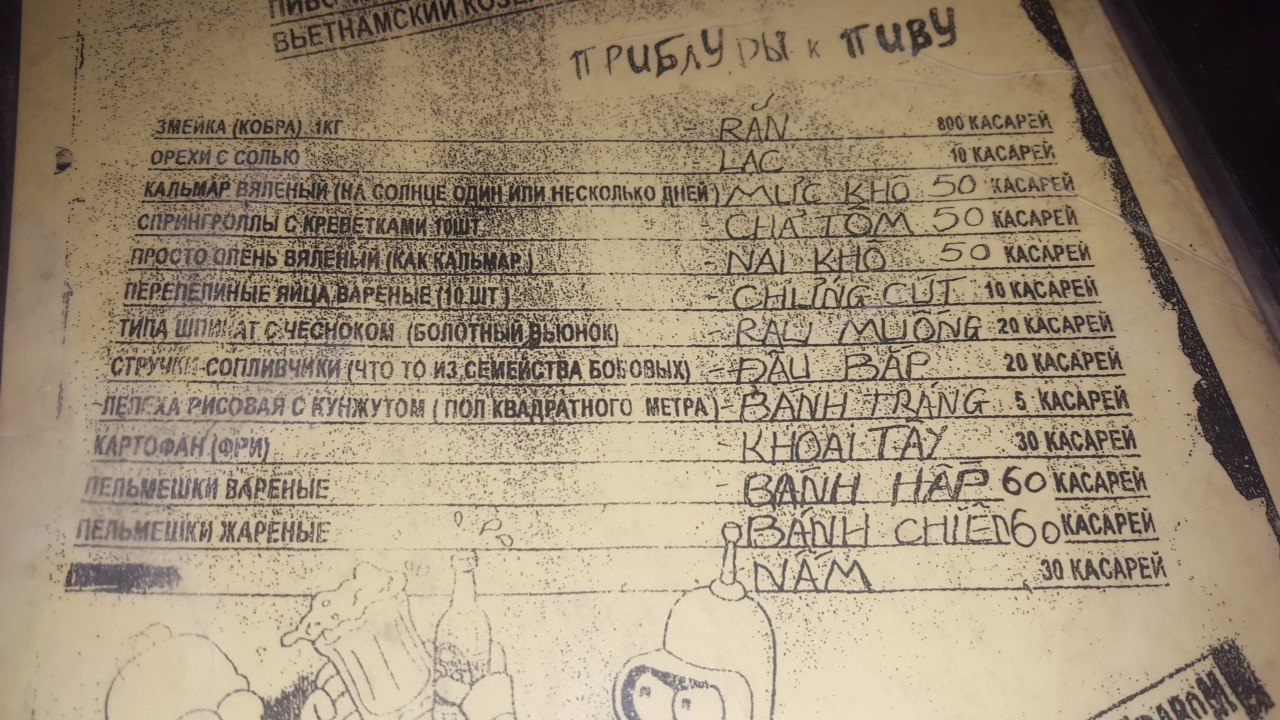 ВЬЕТНАМСКИЙ
ПРИБЛУДЫ К ПИВУ
ЗМЕЙКА (КОБРА) 1КГ - RẮN 800 КАСАРЕЙ
ОРЕХИ С СОЛЬЮ - LAC 10 КАСАРЕЙ
КАЛЬМАР ВЯЛЕНЫЙ (НА СОЛНЦЕ ОДИН ИЛИ НЕСКОЛЬКО ДНЕЙ) MỰC KHÔ 50 КАСАРЕЙ
СПРИНГРОЛЛЫ С КРЕВЕТКАМИ 10ШТ - CHẢ TÔM 50 КАСАРЕЙ
ПРОСТО ОЛЕНЬ ВЯЛЕНЫЙ (КАК КАЛЬМАР) - NAI KHÔ 50 КАСАРЕЙ
ПЕРЕПЕЛИНЫЕ ЯЙЦА ВАРЕНЫЕ (10 ШТ) - CHỨNG CÚT 10 КАСАРЕЙ
ТИПА ШПИНАТ С ЧЕСНОКОМ (БОЛОТНЫЙ ВЬЮНОК) - RAU MUỐNG 20 КАСАРЕЙ
СТРУЧКИ-СОПЛИВЧИКИ (ЧТО ТО ИЗ СЕМЕЙСТВА БОБОВЫХ) - ĐẬU BẮP 20 КАСАРЕЙ
ЛЕПЕХА РИСОВАЯ С КУНЖУТОМ (ПОЛ КВАДРАТНОГО МЕТРА) - BÁNH TRÁNG 5 КАСАРЕЙ
КАРТОФАН (ФРИ) - KHOAI TÂY 30 КАСАРЕЙ
ПЕЛЬМЕШКИ ВАРЕНЫЕ - BÁNH HẤP 60 КАСАРЕЙ
ПЕЛЬМЕШКИ ЖАРЕНЫЕ BÁNH CHIÊN 60 КАСАРЕЙ
NẤM 30 КАСАРЕЙ